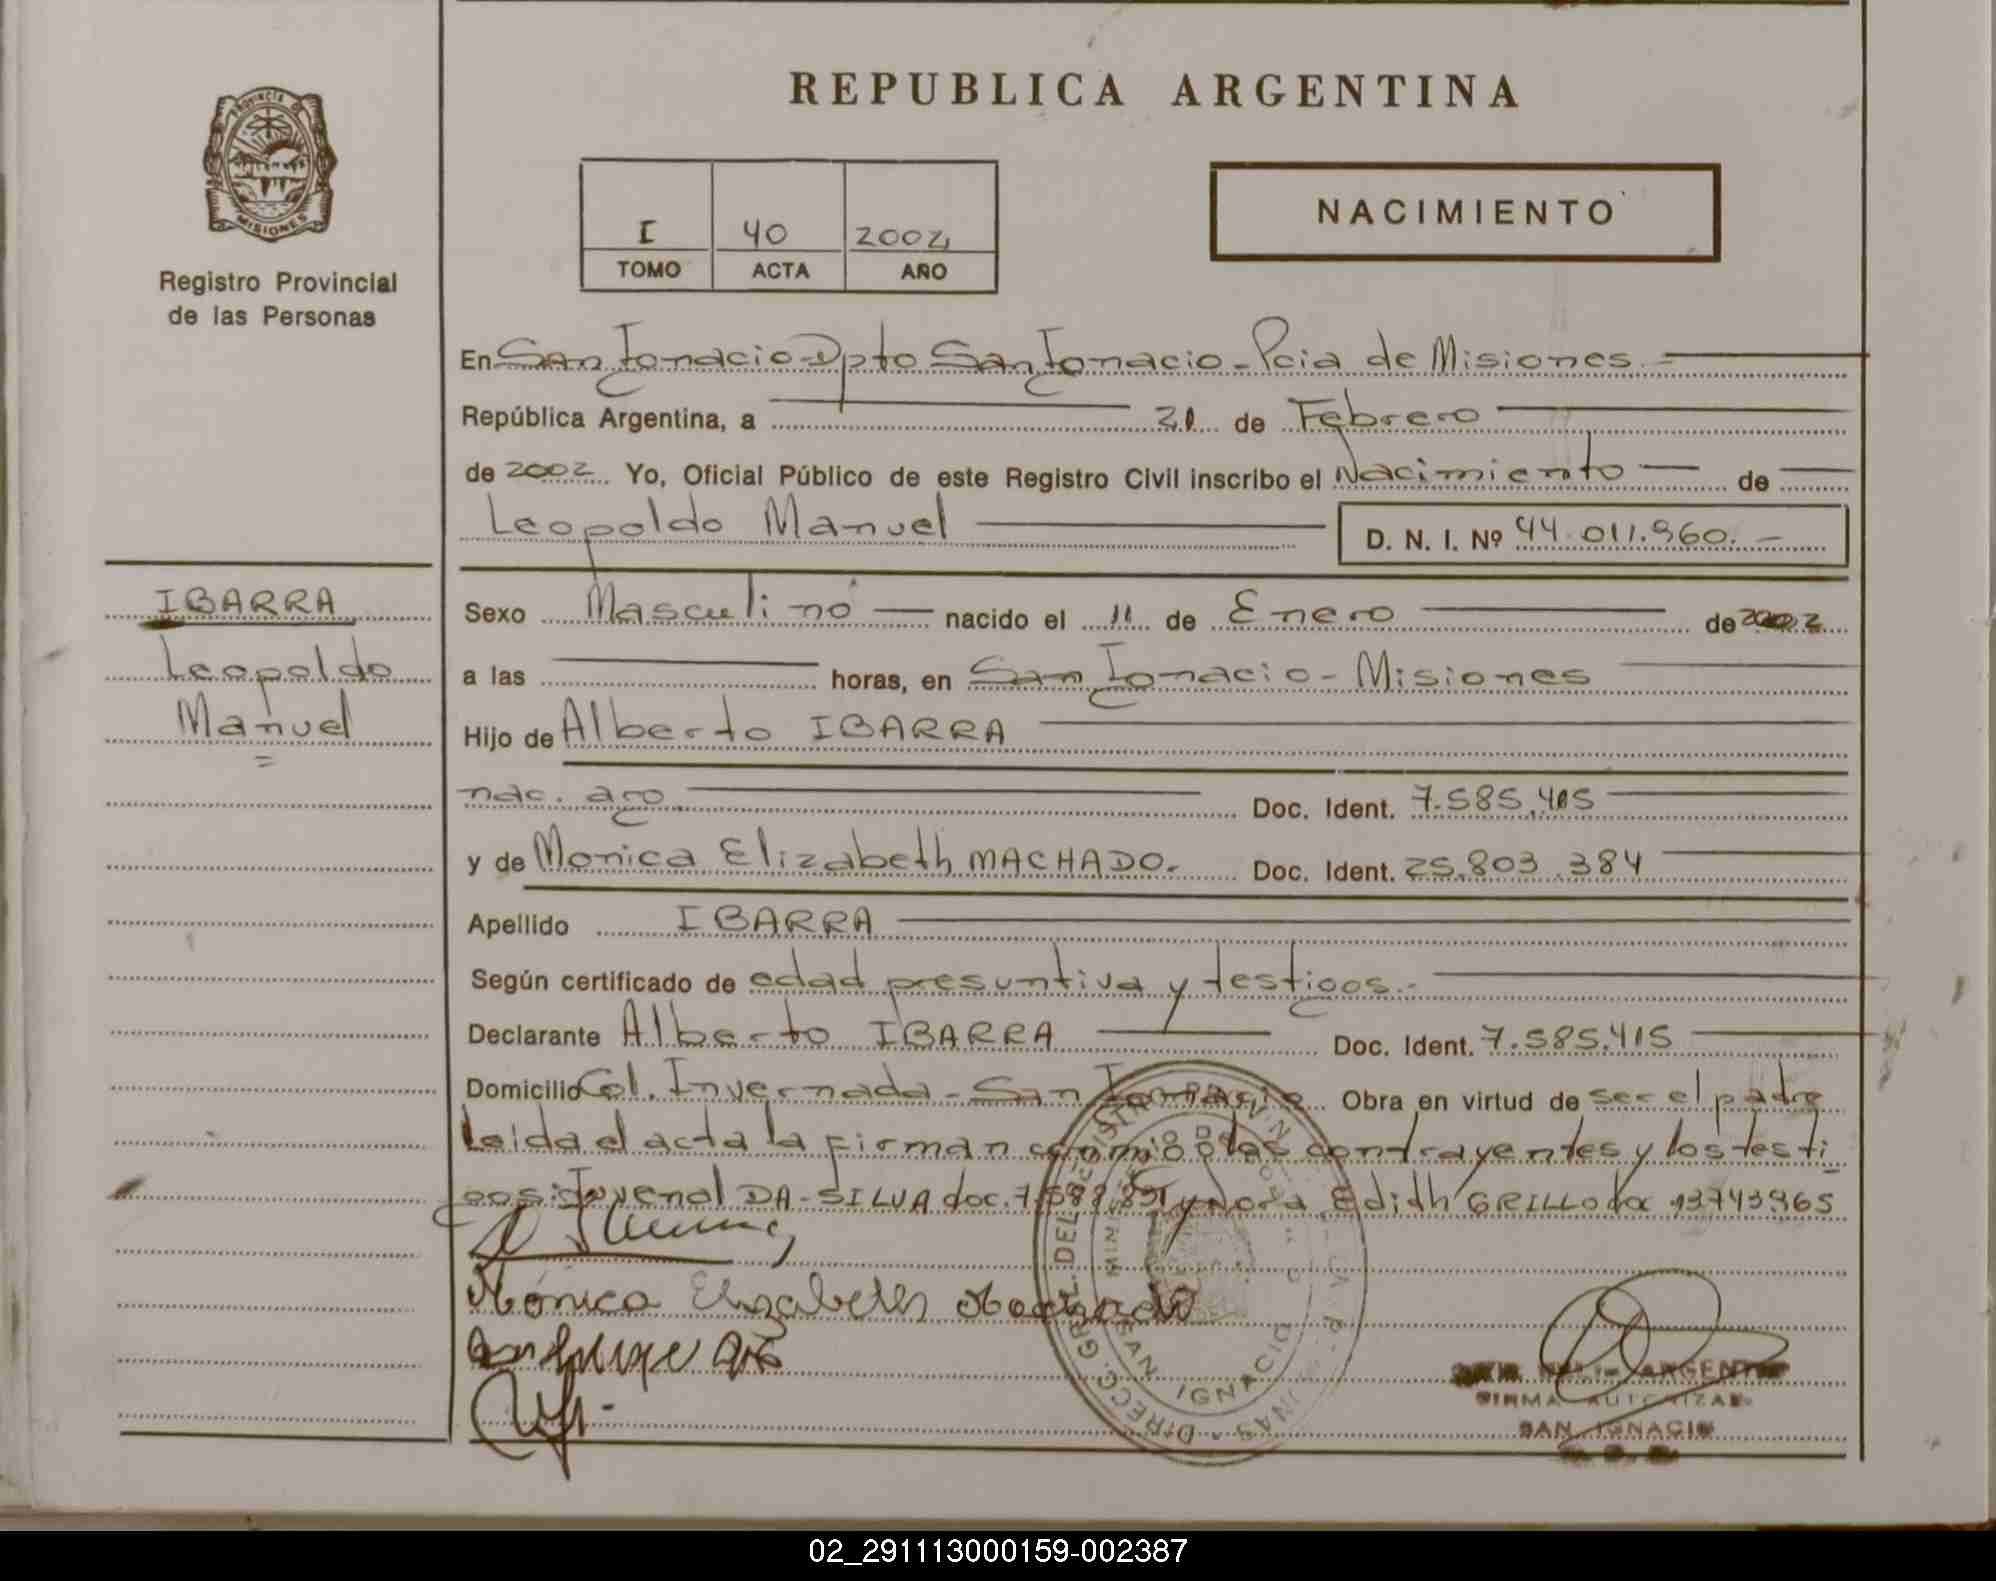 REPUBLICA ARGENTINA
PROVINCIA DE
MISIONES
Registro Provincial
de las Personas
I 40 2002
TOMO ACTA AÑO
NACIMIENTO
En San Ignacio-Dpto San Ignacio-Pcia de Misiones.-
República Argentina, a 21 de Febrero
de 2002 Yo, Oficial Público de este Registro Civil inscribo el Nacimiento de
Leopoldo Manuel
D. N. I. Nº 44.011.960.-
IBARRA
Leopoldo
Manuel
Sexo Masculino nacido el 11 de Enero de 2002
a las horas, en San Ignacio-Misiones
Hijo de Alberto IBARRA
nac. arg. Doc. Ident. 7.585.415
y de Monica Elizabeth MACHADO.- Doc. Ident. 25.803.384
Apellido IBARRA
Según certificado de edad presuntiva y testigos.-
Declarante Alberto IBARRA Doc. Ident. 7.585.415
Domicilio Col. Invernada-San Ignacio Obra en virtud de ser el padre
Leida el acta la firman conmigo los contrayentes y los testi
gos: Juvenal DA-SILVA doc. y Nora Edith GRILLO doc 13743965
Mónica Elizabeth Machado
SAN IGNACIO
FIRMA AUTORIZADA
SAN IGNACIO
02_291113000159-002387